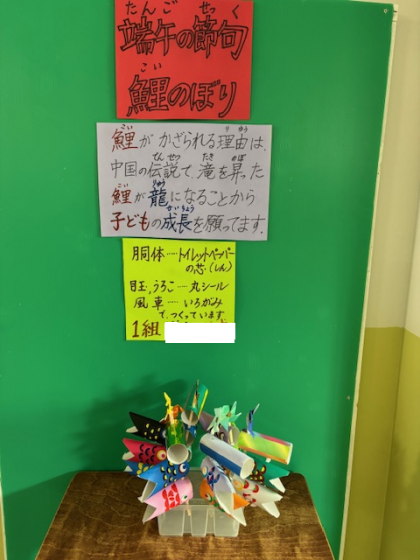 たんご せっく
端午の節句
こい
鯉のぼり
こい りゆう
鯉がかざられる理由は、
でんせつ たき のぼ
中国の伝説で、滝を昇った
こい りゅう
鯉が龍になることから
せいちょう
子どもの成長を願ってます。
胴体……トイレットペーパー
の芯(しん)
目玉、うろこ…丸シール
風車……いろがみ
で、つくっています。
1組